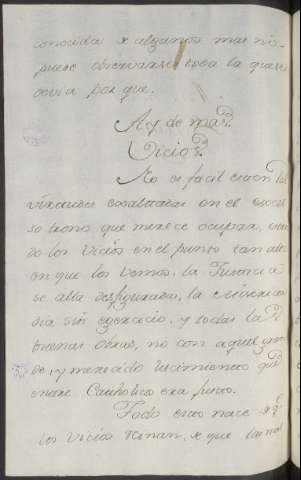 conocida de algunos mas no
puede observarse toda la que se
devia por que.
Ay de mas
Vicios
No es facil esten las
virtudes exaltadas en el excel
so trono que merece ocupar, estan
do los Vicios en el punto tan alto
en que los vemos, la Justicia
se alla desfigurada, la misericor
dia sin egercicio, y todas las
buenas obras, no con aquel gran
de, y merecido lucimiento que
entre Catholicos era justo.
Todo esto nace de q.e
los Vicios Reinan, y que las mal